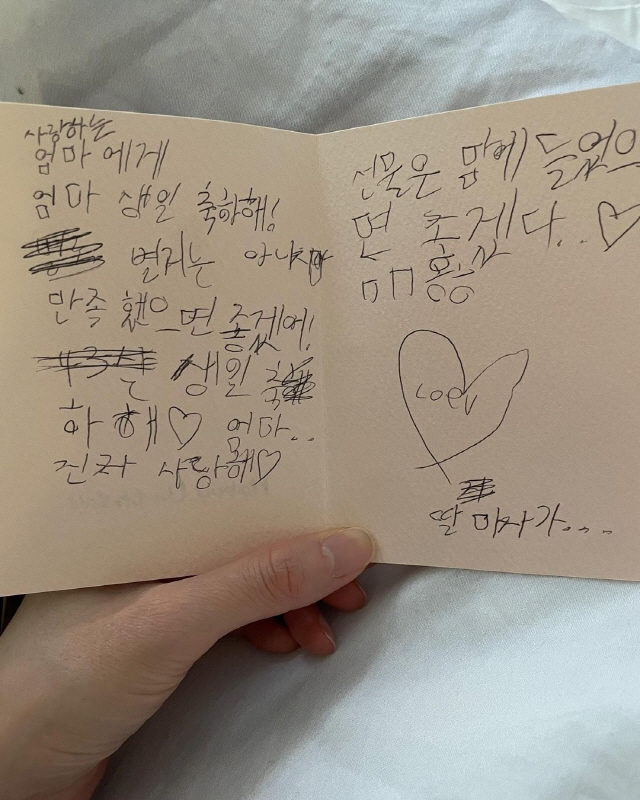 사랑하는
엄마에게
엄마 생일 축하해!
별거는 아니지만
만족했으면 좋겠어!
생일 축
하해♡ 엄마..
진짜 사랑해♡
선물은 맘에 들었으
면 좋겠다..♡
Loev
딸 미사가....